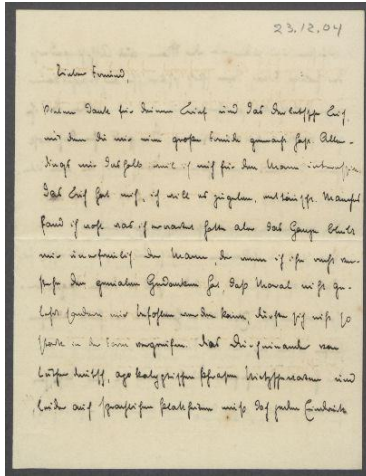 23.12.04
Lieber Freund,
vielen Dank für deinen Brief und das
mit dem du mir eine große Freude gemacht hast. Aller-
dings nur deshalb weil ich mich für den Mann interessiere.
Das Buch hat mich, ich will es zugeben, enttäuscht. Manches
fand ich wohl was ich erwartet hatte aber das Ganze bleibt
mir unerfreulich. Der Mann, der wenn ich ihn recht ver-
stehe den genialen Gedanken hat, daß Moral nicht ge-
lehrt sondern nur befohlen werden kann, dürfte sich nicht so
stark in der Form vergreifen. Das Durcheinander von
Lutherdeutsch, apokalyptischen Phrasen Nietzscheworten und
leider auf sprachlichen